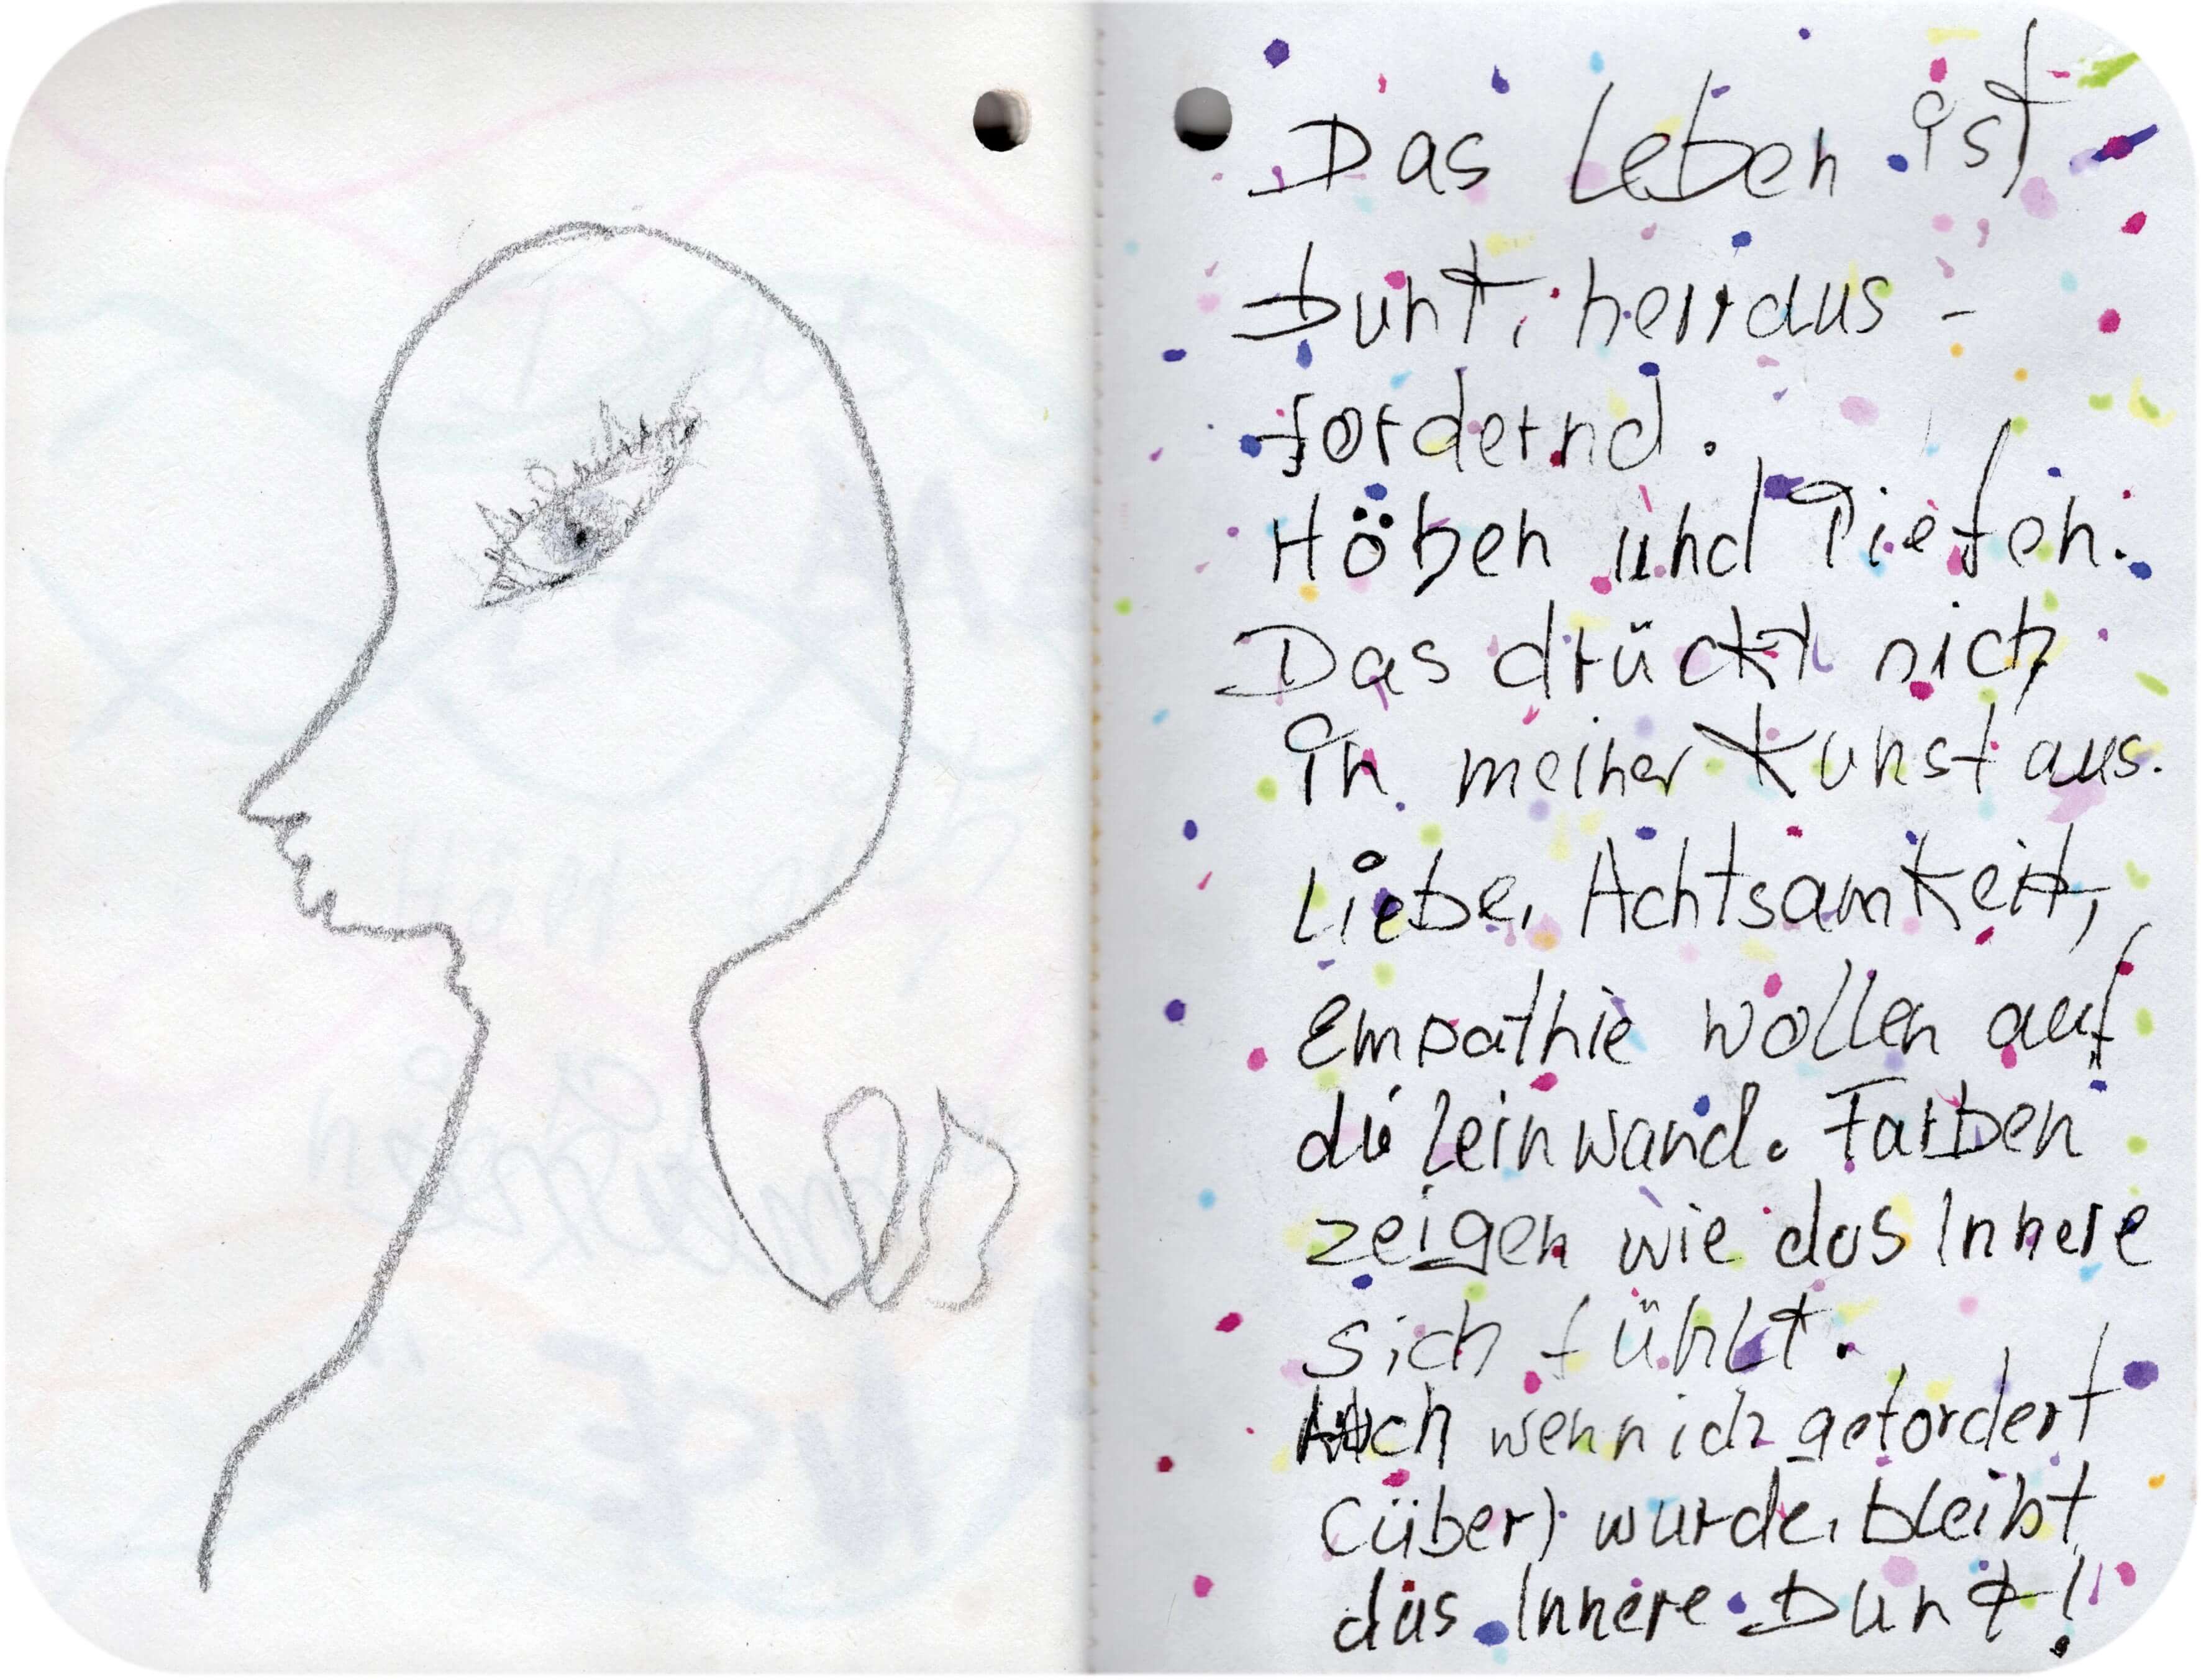 Das Leben ist
bunt, herraus-
fordernd.
Höhen und Tiefen.
Das drückt sich
in meiner Kunst aus.
Liebe, Achtsamkeit,
Empathie wollen auf
die Leinwand. Farben
zeigen wie das Innere
sich fühlt.
Auch wenn ich gefordert
(über) wurde, bleibt
das Innere bunt!